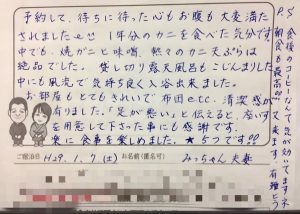 予約して、待ちに待った心もお腹も大変満た
されました 1年分のカニを食べた気分です。
中でも、焼ガニと味噌、熱々のカニ天ぷらは
絶品でした。貸し切り露天風呂もこじんまりした
中にも風流で気持ち良く入浴出来ました。
お部屋もとてもきれいで布団etc. 清潔感が
有りました。「足が悪い」と伝えると、座いす
を用意して下さった事にも感謝です。
楽に食事を楽しめました。★5つです!!
ご宿泊日 H29.1.7(土) お名前(匿名可) みっちゃん夫妻
P.S 食後のコーヒーなんて気が効いてますネ
朝食も最高 又来ます。有難とう